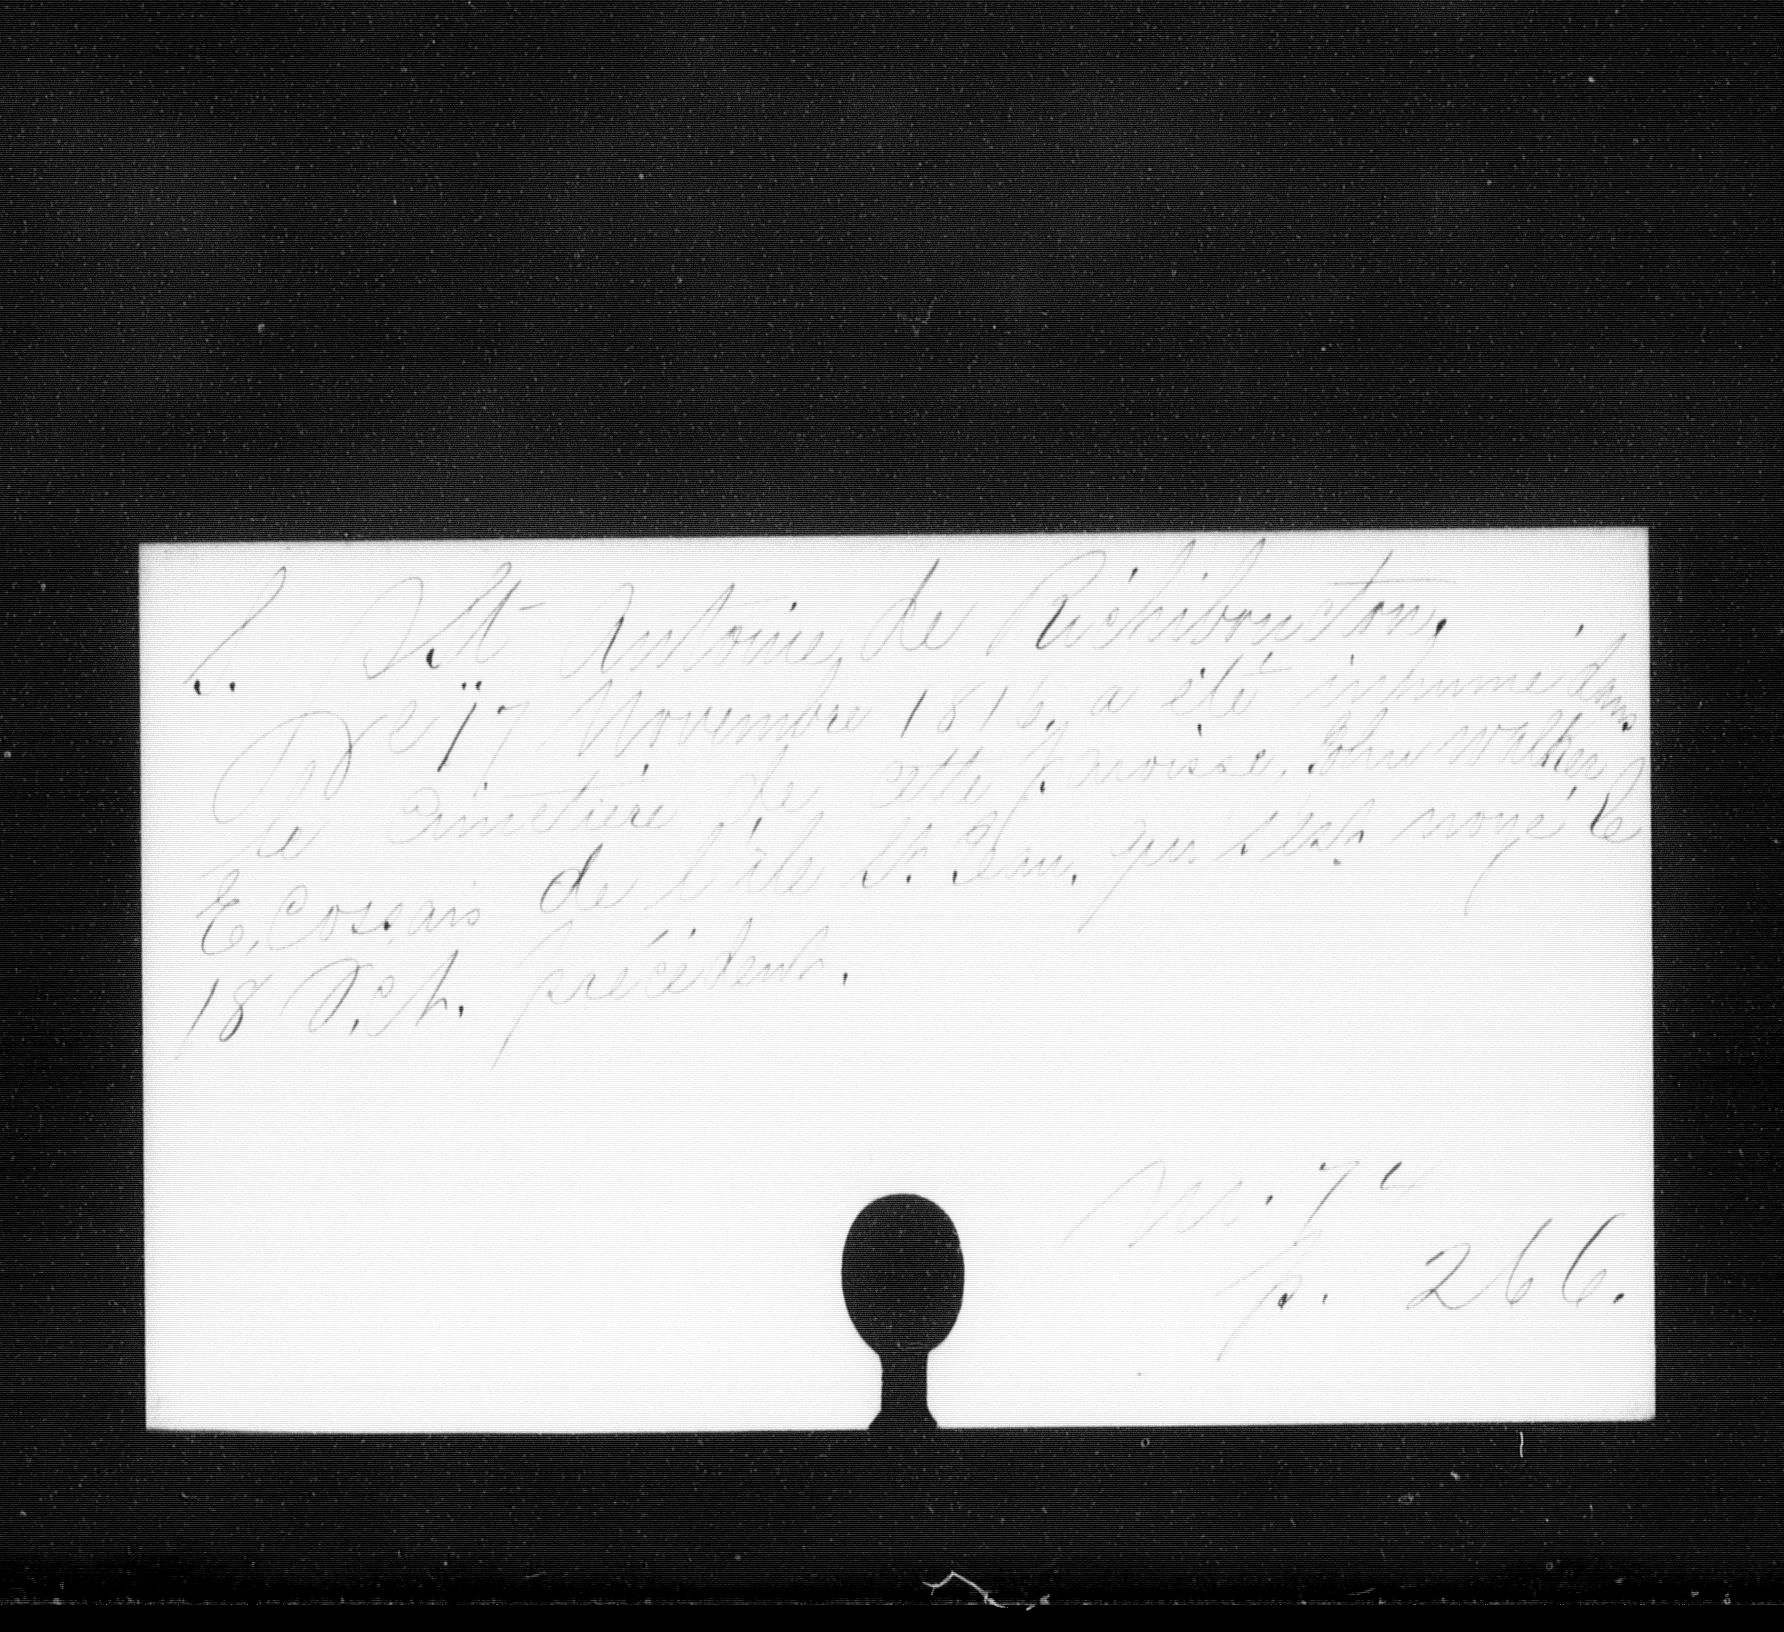 S. St Antoine, de Richibouctou.
Le 17 Novembre 1816, a été inhumé dans
le Cimetière de cette paroisse. John Walker,
E.Cossais de l'ile St. Jean. qui s'est noyé le
18 Sept. précédent.
74
p. 266.